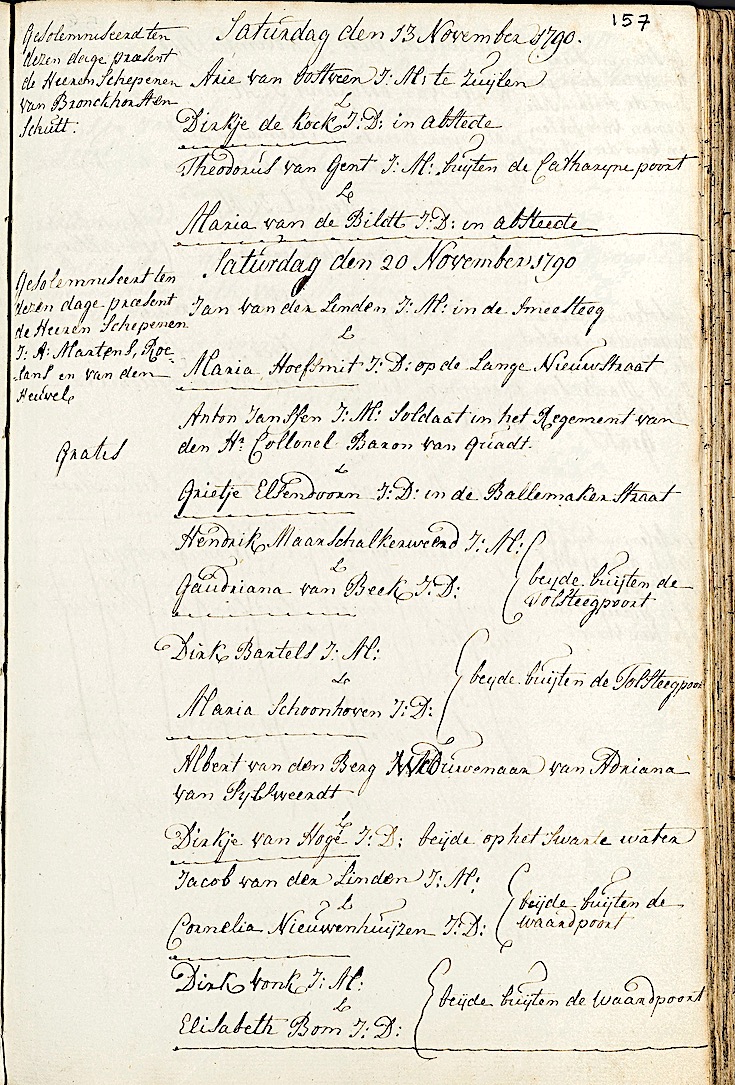 157
Saturdag den 13 November 1790.
Gesolemniseerd ten
dezen dage præsent
de Heeren Schepenen
van Bronckhorst en
Schutt:
Arie van Oostveen J: M: te Zuijlen
&
Dirkje de Kock J: D: in abstede
Theodorus van Gent J: M: buijten de Catharyne poort
&
Maria van de Bildt J: D: in absteede
Saturdag den 20 November 1790
Gesolemniseert ten
dezen dage præsent
de Heeren Schepenen
J: A: Martens, Roe-
lans en van den
Heuvel
Jan van der Linden J: M: in de Smeesteeg
&
Maria Hoefsmit J: D: op de Lange Nieuwstraat
Gratis
Anton Janssen J: M: Soldaat in het Regement van
den Hr. Collonel Baron van Quadt
&
Grietje Elsendoorn J: D: in de Ballemaker Straat
Hendrik Maarschalkerweerd J: M:
&
Gaudriana van Beek J: D:
beijde buijten de
Tolsteegpoort
Dirk Bartels J: M:
&
Maria Schoonhoven J: D:
beijde buijten de Tolsteegpoor
Albert van den Berg Weduwenaar van Adriana
van Sylsweerdt
&
Dirkje van Hoge J: D: beijde op het Swarte water
Jacob van der Linden J: M:
&
Cornelia Nieuwenhuijzen J: D:
beijde buijten de
waardpoort
Dirk Vonk J: M:
&
Elisabeth Bom J: D:
beijde buijten de waardpoort